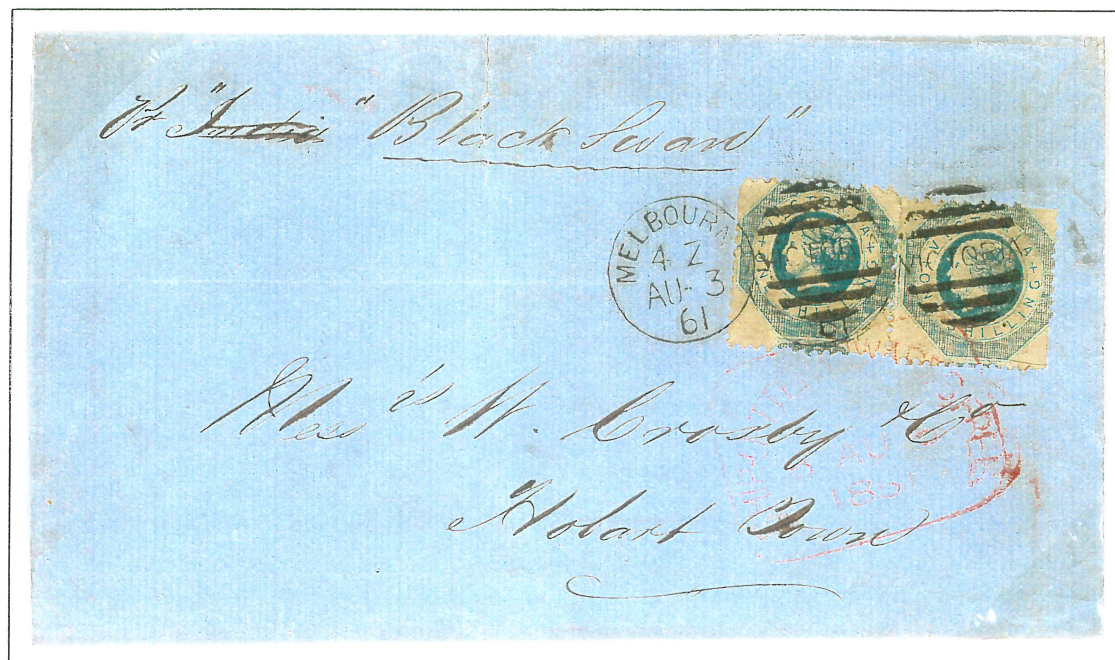 Pr "India" "Black Swan"
MELBOURNE
4 Z
AU- 3
61
VICTORIA
ONE SHILLING
VICTORIA
ONE SHILLING
VICTORIA
61
Mess rs W. Crosby & Co
Hobart Town
AU